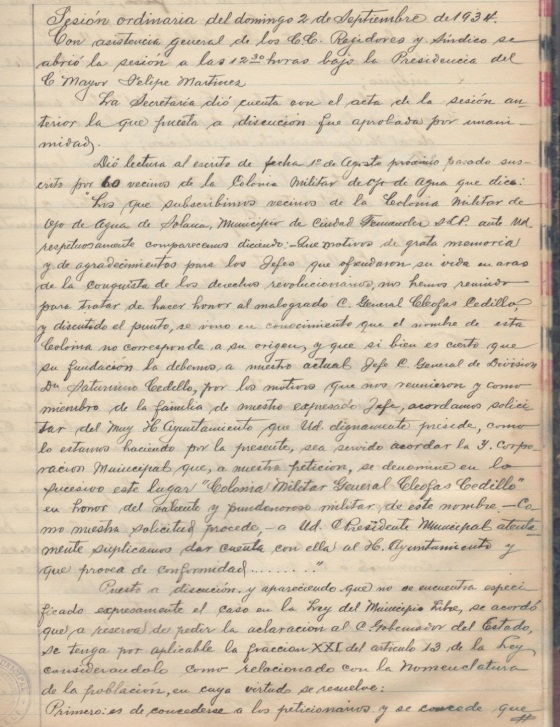 Sesión ordinaria del domingo 2 de Septiembre de 1934.
Con asistencia general de los CC. Regidores y Síndico se
abrió la sesión a las 12 30 horas bajo la Presidencia del
C. Mayor Felipe Martínez
La Secretaría dió cuenta con el acta de la sesión an-
terior la que puesta a discución fue aprobada por unani-
midad.
Dió lectura al escrito de fecha 1º de Agosto próximo pasado sus-
crito por 60 vecinos de la Colonia Militar de Ojo de Agua que dice:
"Los que subscribimos vecinos de la Colonia Militar de
Ojo de Agua de Solana, Municipio de Ciudad Fernandez S.L.P. ante Ud.
respetuosamente comparecemos diciendo:-Que motivos de grata memoria
y de agradecimientos para los Jefes que ofrendaron su vida en aras
de la conquista de los derechos revolucionarios, nos hemos reunido
para tratar de hacer honor al malogrado C. General Cleofas Cedillo,
y discutido el punto, se vino en conocimiento que el nombre de esta
Colonia no corresponde a su origen, y que si bien es cierto que
su fundación la debemos a nuestro actual Jefe C. General de División
Dn Saturnino Cedillo, por los motivos que nos reunieron y como
miembro de la familia de nuestro expresado Jefe, acordamos solici-
tar del Muy H. Ayuntamiento que Ud. dignamente preside, como
lo estamos haciendo por la presente, sea servido acordar la Y. Corpo-
racion Municipal que, a nuestra petición, se denomine en lo
sucesivo este lugar "Colonia Militar General Cleofas Cedillo"
en honor del valiente y pundonoroso militar de este nombre.-Co-
mo nuestra solicitud procede,-a Ud. C. Presidente Municipal atenta-
mente suplicamos dar cuenta con ella al H. Ayuntamiento y
que provea de conformidad........"
Puesto a discución, y apareciendo que no se encuentra especi-
ficado expresamente el caso en la Ley del Municipio Libre, se acordó
que, a reserva de pedir la aclaración al C. Gobernador del Estado,
se tenga por aplicable la fraccion XXI del articulo 13 de la Ley
considerandolo como relacionado con la Nomenclatura
de la poblacion, en cuya virtud se resuelve:
Primero: es de concederse a los peticionarios y se concede que